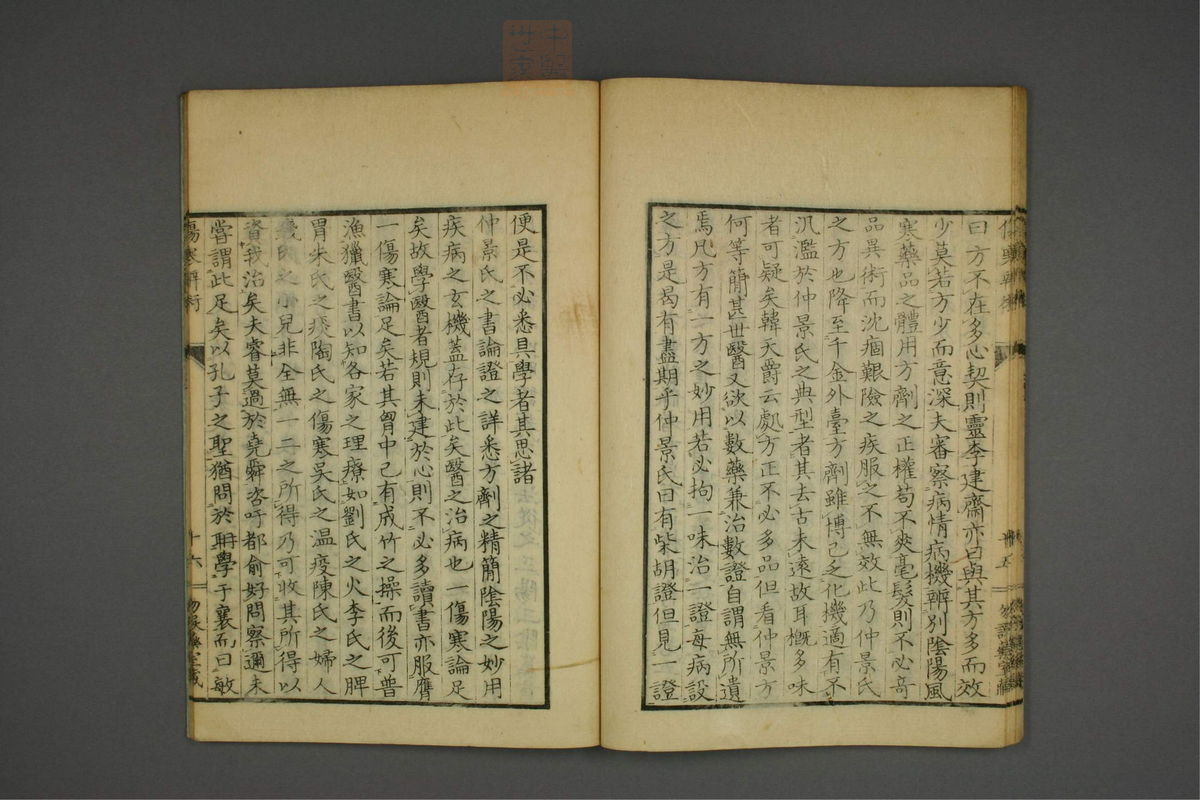 曰方不在多心契則靈李建齋亦曰與其方多而效
少莫若方少而意深夫審察病情病機辨別陰陽風
寒藥品之體用方劑之正權苟不爽毫髮則不必奇
品異術而沈痼艱險之疾服之不不無效此乃仲景氏
之方也降至千金外臺方劑雖博已乏化機適有不
汎濫於仲景氏之典型者其去古未遠故耳概多味
者可疑矣韓天爵云處方正不必多品但看仲景方
何等簡甚世醫又欲以數藥兼治數證自謂無所遺
焉凡方有一方之妙用若必拘一味治一證每病設
之方是曷有盡期乎仲景氏曰有柴胡證但見一證
便是不必悉具學者其思諸
仲景氏之書論證之詳悉方劑之精簡陰陽之妙用
疾病之玄機蓋存於此矣醫之治病也一傷寒論足
矣故學醫者規則未建於心則不必多讀書亦服膺
一傷寒論足矣若其胷中已有成竹之操而後可普
漁獵醫書以知各家之理療如劉氏之火李氏之脾
胃朱氏之痰陶氏之傷寒吳氏之溫疫陳氏之婦人
錢氏之小兒非全無一二之所得乃可收其所得以
資我治矣夫睿莫過於堯舜咨吁都俞好問察邇未
嘗謂此足矣以孔子之聖猶問於耼學于襄而曰敏
傷寒辨術
十六